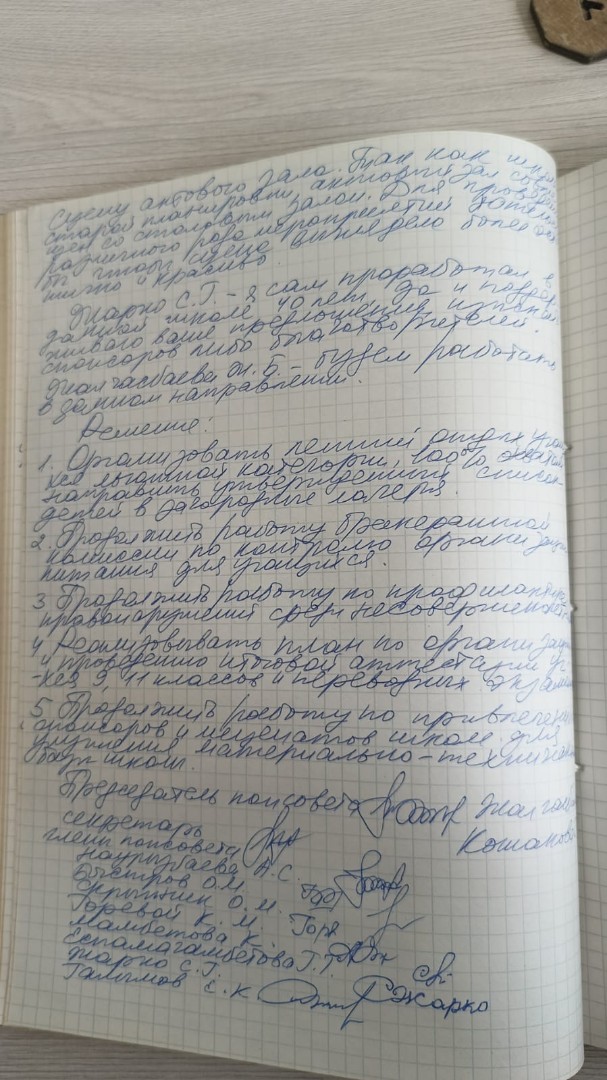 сцену актового зала. Так как
старой планировки, актовый зал
щен со столовым залом. Для
различного рода мероприятий
бы чтобы сцена выглядело более
тично и красиво.
Жарко С.Г. - я сам проработал в
данной школе 40 лет, да и поддер
живаю ваше предложение
спонсоров либо благотворителей.
Жалгасбаева Ж.Б. - будем работать
в данном направлении.
Решение:
1. Организовать летний отдых
хся льготной категории,
направить утвержденный список
детей в загородные лагеря.
2. Продолжить работу бракеражной
комиссии по контролю организации
питания для учащихся.
3 Продолжить работу по профилактике
правонарушений среди несовершеннолет
4 Реализовывать план по организации
и проведению итоговой аттестации
-хся 9, 11 классов и переводных экзамен
5. Продолжить работу по привлечению
спонсоров и меценатов школе для
улучшения материально-технической
базы школы.
Председатель попсовета
секретарь
члены попсовета
Наурызбаева А.С.
Быстров О.М.
Скрыпник О.М.
Горевой К.И. Горе
Мамбетова К.
Еспамагамбетова Г.Т.
Жарко С.Г.
Галымов Е.К Жарко